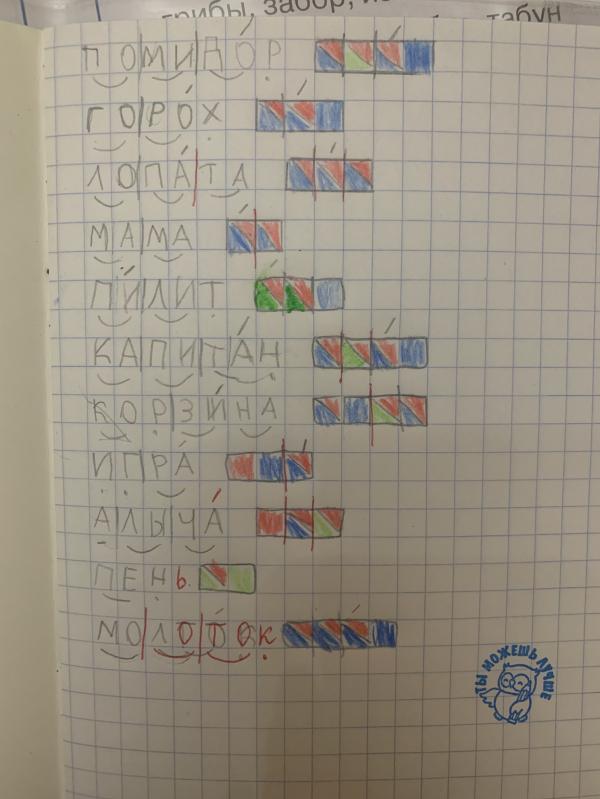 грибы, забор,
табун
ПОМИДОР
ГОРО́Х
ЛОПА́ТА
МАМА
ПИ́ЛИТ
КАПИТА́Н
КОРЗИ́НА
ИГРА́
АЛЫЧА́
ПЕНЬ
МОЛОТОК
ТЫ МОЖЕШЬ ЛУЧШЕ